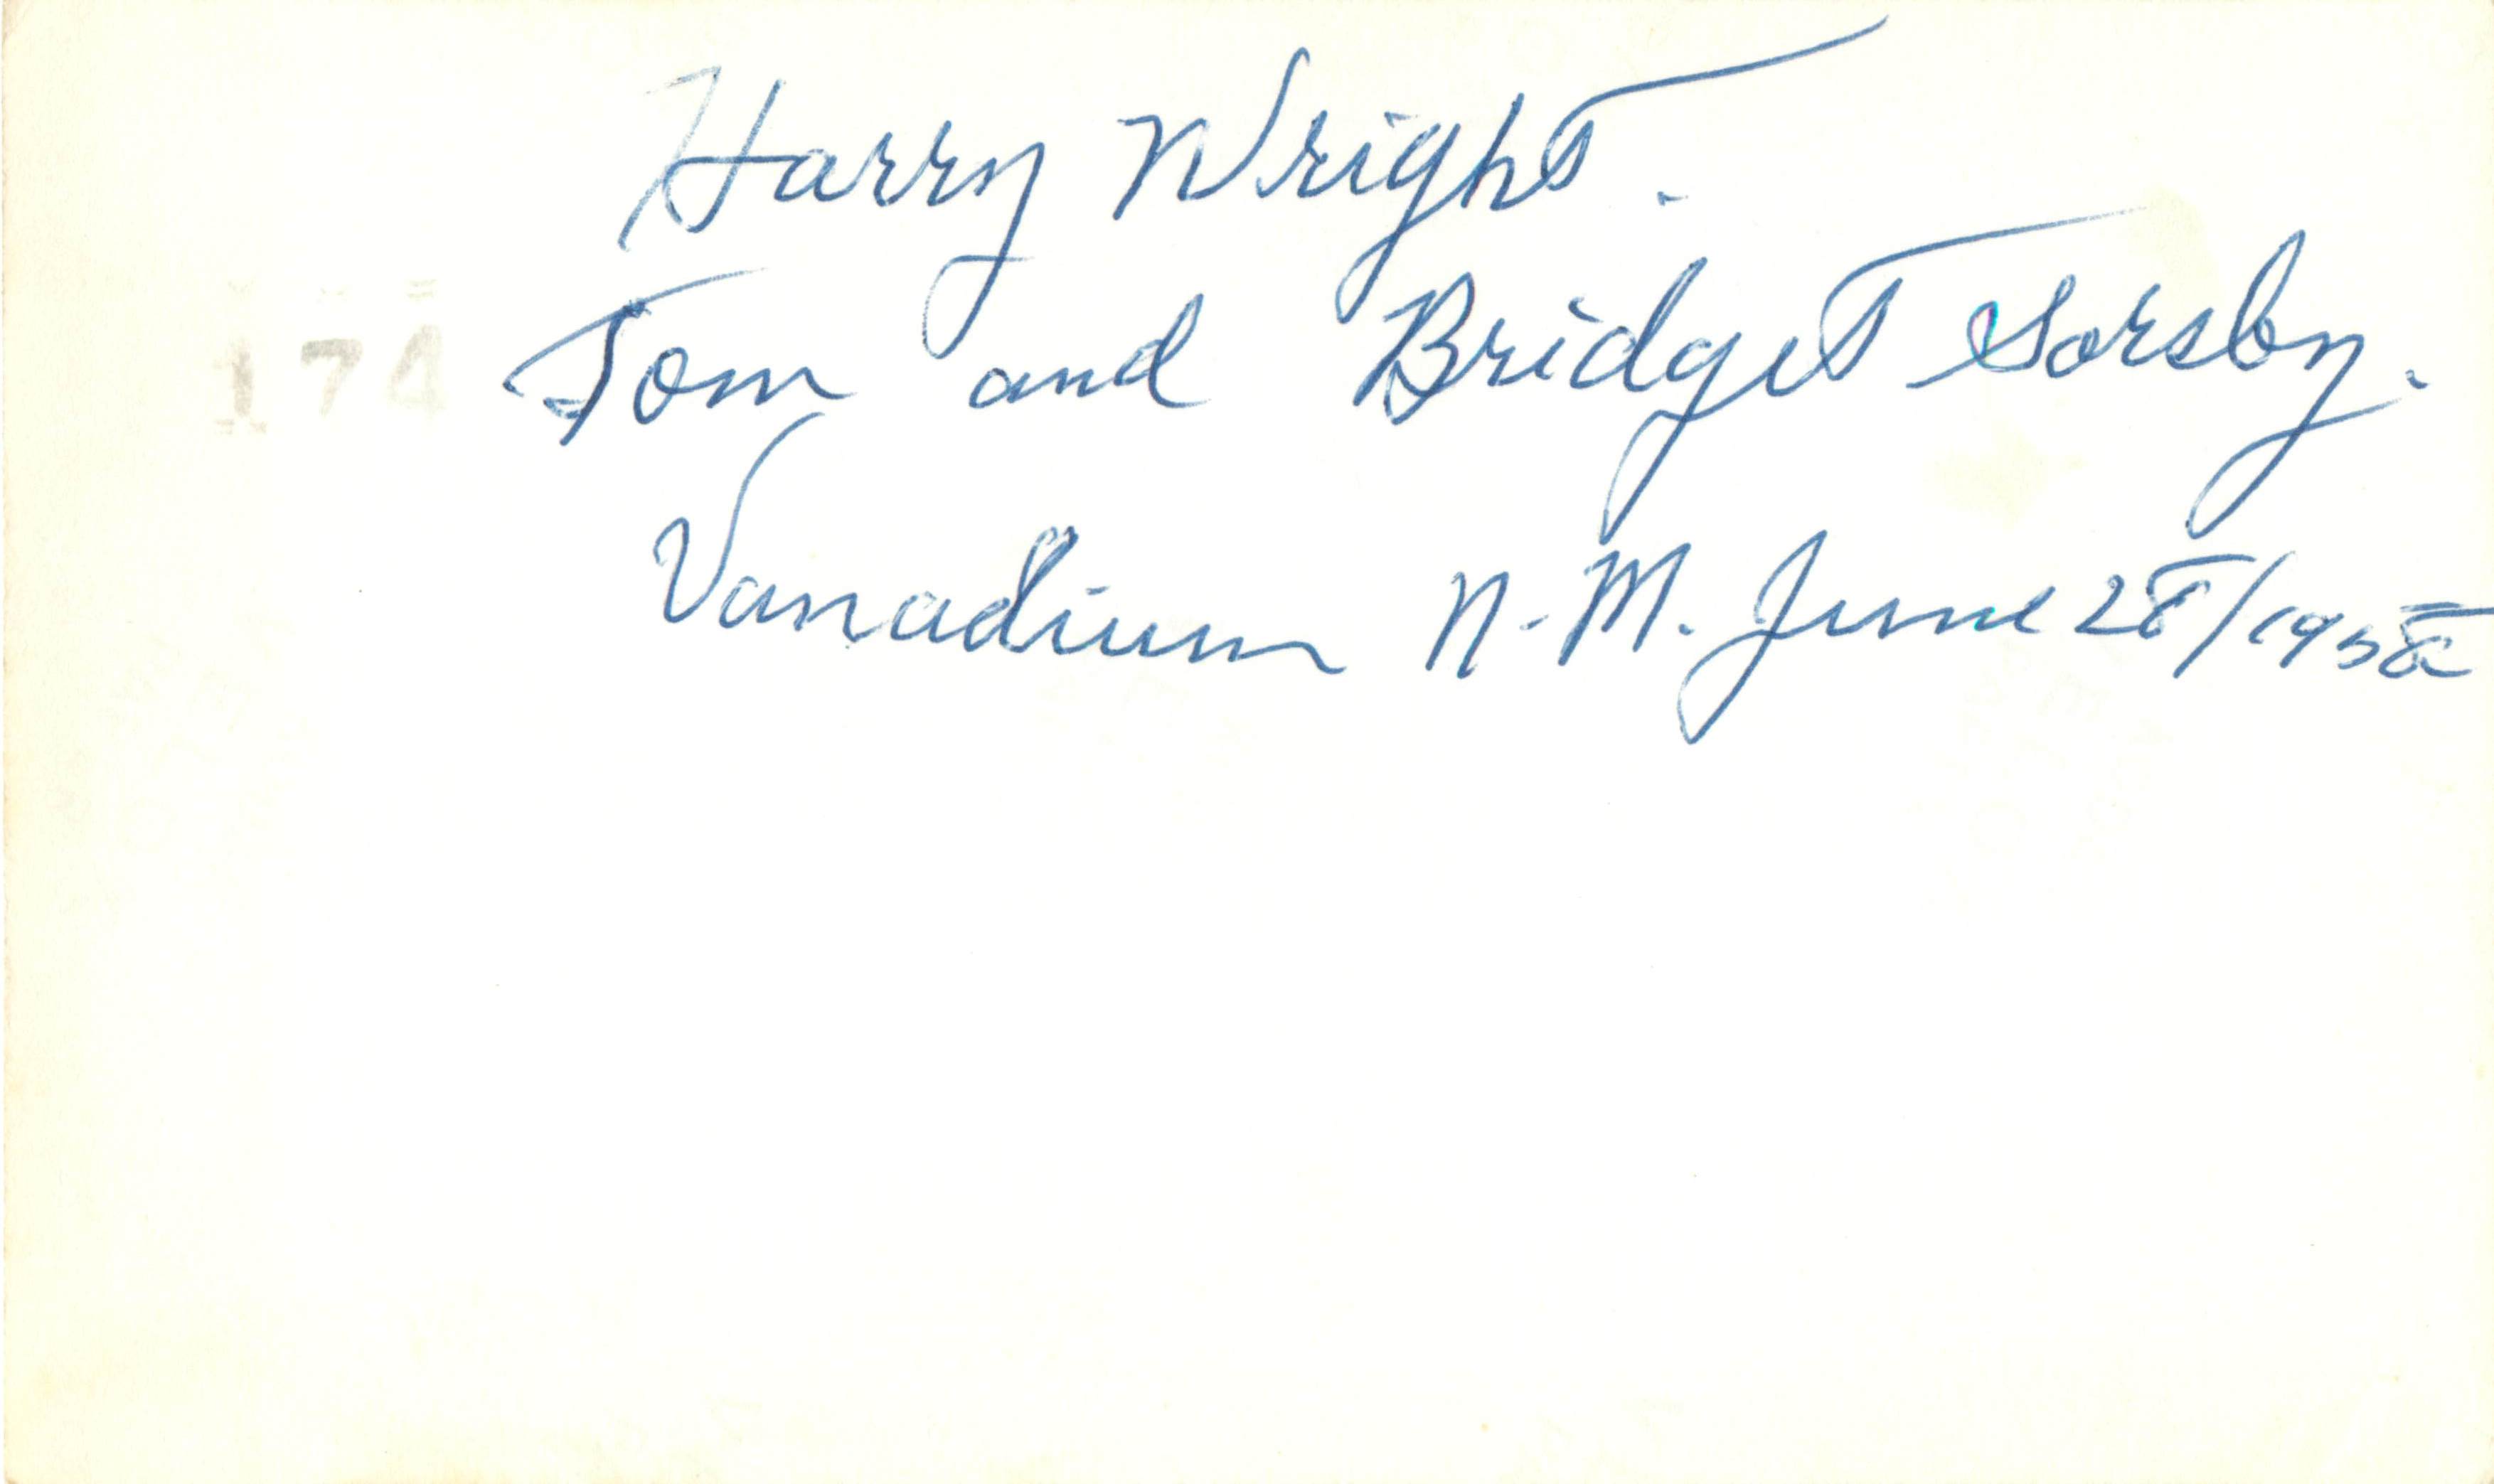 Harry Wright.
174
Tom and Bridget Sorsby.
Vanadium N.M. June 28/